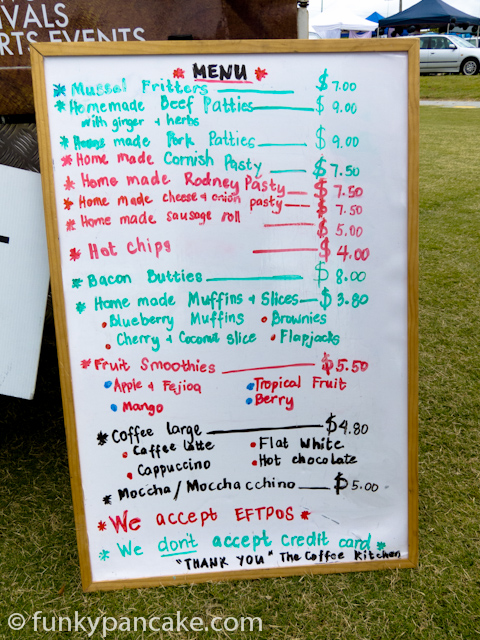 IVALS
RTS EVENTS
* MENU *
* Mussel Fritters $7.00
* Homemade Beef Patties $9.00
with ginger + herbs
* Home made Pork Patties $9.00
* Home made Cornish Pasty $7.50
* Home made Rodney Pasty $7.50
* Home made cheese & onion pasty $7.50
* Home made sausage roll $5.00
* Hot chips $4.00
* Bacon Butties $8.00
* Home made Muffins & Slices $3.80
• Blueberry Muffins • Brownies
• Cherry & Coconut slice • Flapjacks
* Fruit Smoothies $5.50
• Apple & Fejioa • Tropical Fruit
• Mango • Berry
* Coffee large $4.80
• Coffee Latte • Flat White
• Cappuccino • Hot chocolate
* Moccha/Mocchacchino $5.00
* We accept EFTPOS *
* We don't accept credit card *
"THANK YOU" The Coffee Kitchen
© funkypancake.com